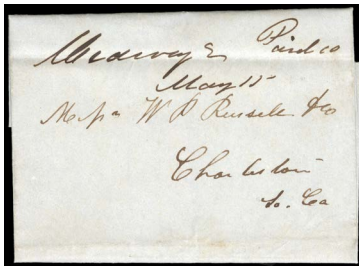 Medway Ga Paid 10
May 15
Messrs W P Russell & Co
Charleston
So. Ca